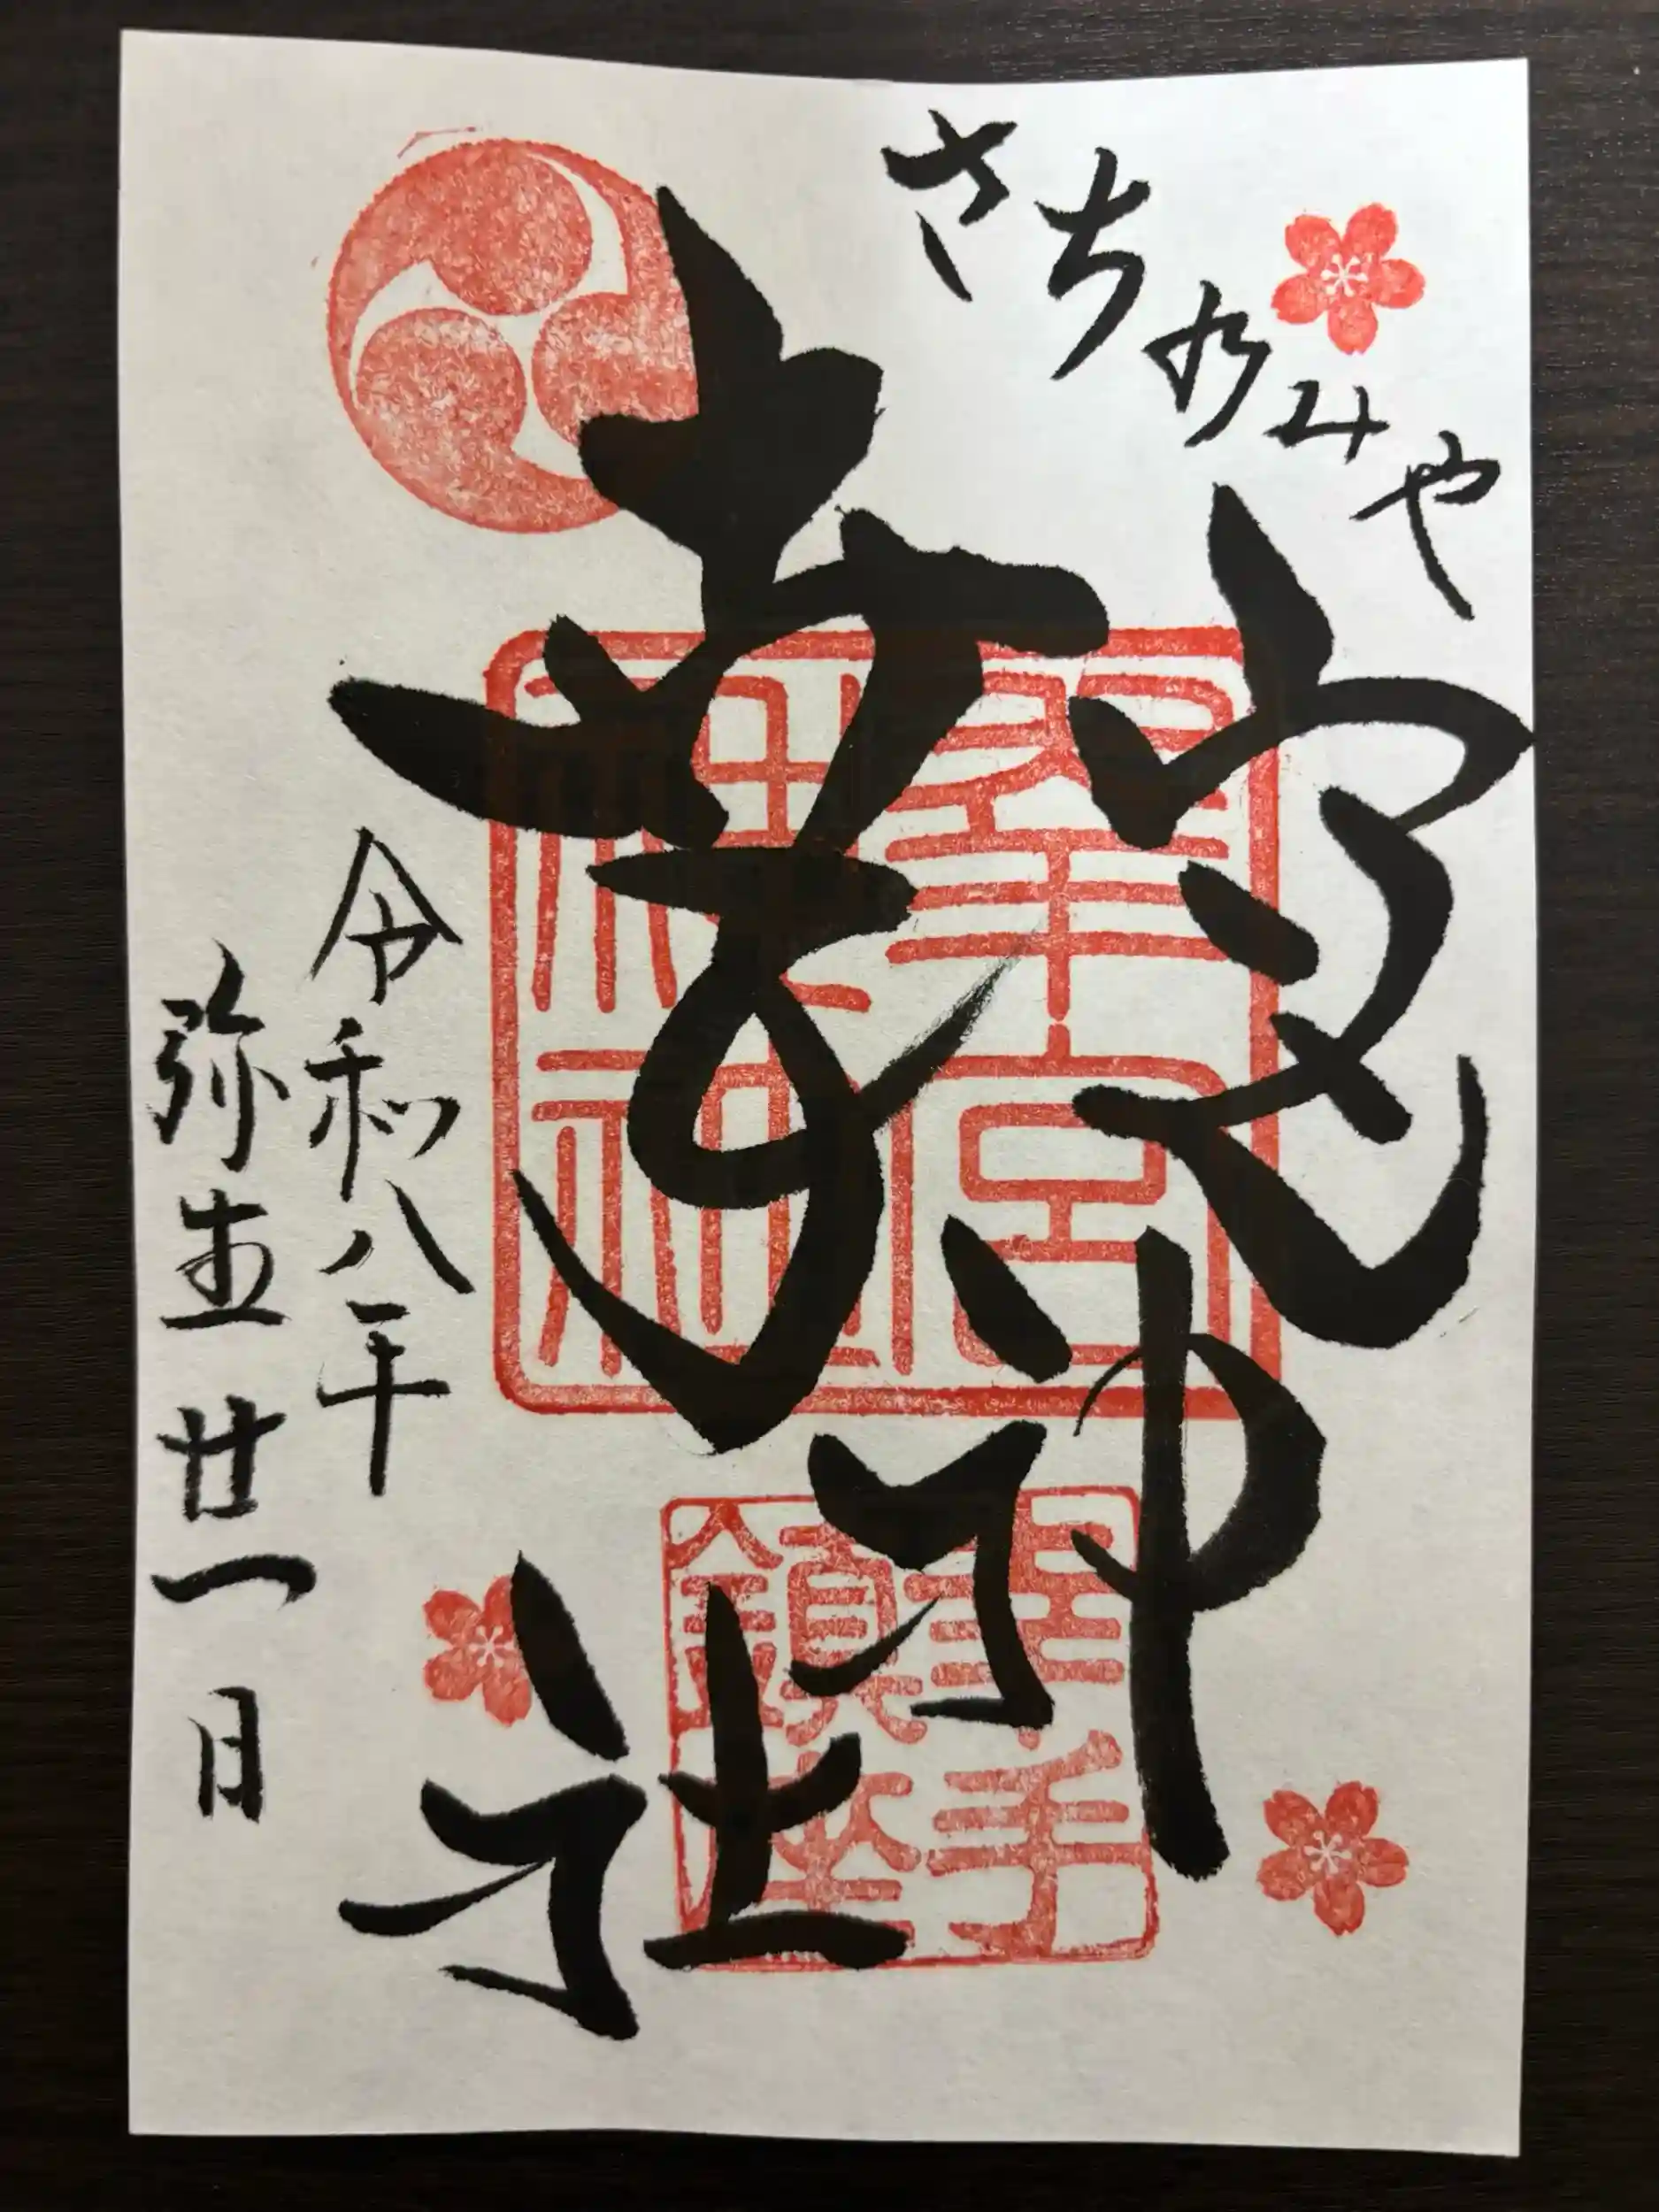 さち乃みや
幸宮
神社
幸宮
神社
幸手
鎮座
令和八年
弥生廿一日